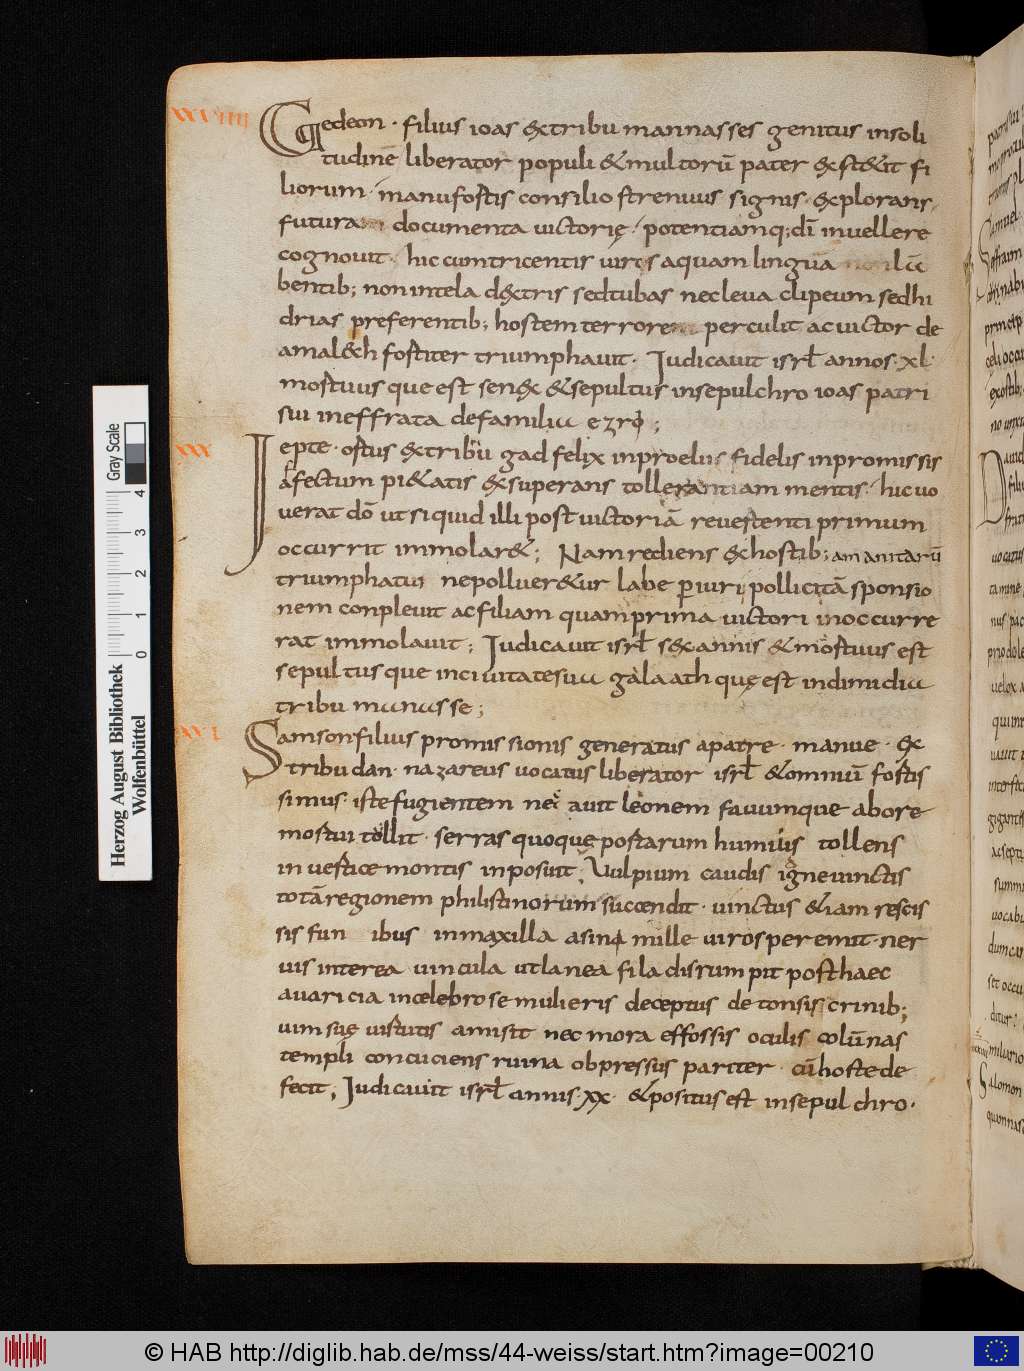 XXVIIII Gedeon · filius ioas &x tribu mannasses genitus in soli
tudinē liberator populi & multorū pater &xst&it fi
liorum · manu fortis consilio strenuus signis · &xplorans
futura documenta victorię · potentiamq; dī in vellere
cognovit · hic cum tricentis viros aquam lingua
bentib; non in tela d&xtris sed tubas nec leva clipeum sed hi
drias preferentib; hostem terrore perculit ac victor de
amal&ch fortiter triumphavit · Iudicavit isrl̄ annos · xl ·
mortuus que est sen&x & sepultus in sepulchro ioas patri
sui in effrata de familia ezri ;
XXX Iepte · ortus &x tribu gad felix in proeliis fidelis in promissis
affectum pi&atis &xsuperans tollerantiam mentis · hic vo
verat dō ut si quid illi post victoriā revertenti primum
occurrit immolar& ; Nam rediens &x hostib; amanitarū
triumphatis ne polluer&ur labe periurii pollicitā sponsio
nem conplevit ac filiam quam prima victori in occurre
rat immolavit ; Iudicavit isrl̄ s&x annis & mortuus est
sepultus que in civitate sua galaath quę est in dimidia
tribu manasse ;
XXXI Samson filius promissionis generatus a patre · manue · &x
tribu dan · nazareus vocatus liberator isrl̄ & omniū fortis
simus · iste fugientem necavit leonem favumque ab ore
mortui tollit · serras quoque portarum humiis tollens
in vertice montis inposuit ; Vulpium caudis igne vinctis
totā regionem philistinorum succendit · vinctus & iam rescis
sis fun ibus in maxilla asinę mille viros peremit · ner
vis interea vincula ut lanea fila disrumpit post haec
avaricia in celebrose mulieris deceptus detonsis crinib;
vim suę virtutis amisit nec mora effossis oculis colūnas
templi concuciens ruina obpressus pariter · cū hoste de
fecit ; Iudicavit isrl̄ annis · xx · & positus est in sepulchro ·
Herzog August Bibliothek
Wolfenbüttel
Gray Scale
0 1 2 3 4
© HAB http://diglib.hab.de/mss/44-weiss/start.htm?image=00210